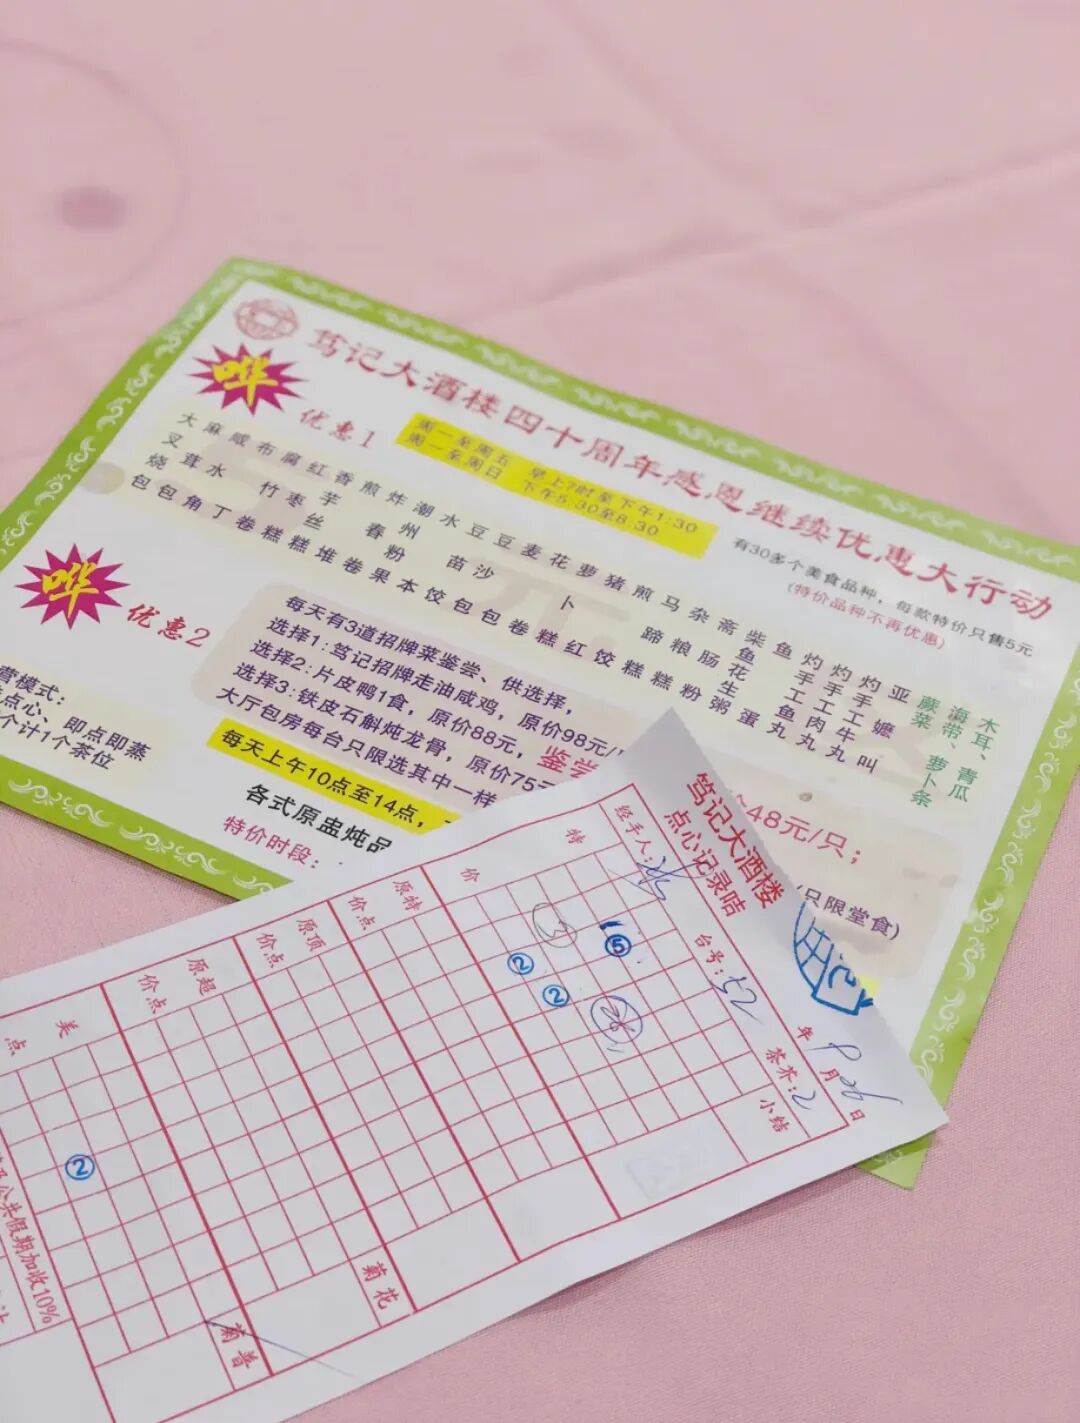 笃记大酒楼四十周年感恩继续优惠大行动
哗
优惠1
周一至周五 早上7时至下午1:30
周一至周日 下午5:30至8:30
有30多个美食品种，每款特价只售5元
(特价品种不再优惠)
大叉烧包
麻茸包
咸水角
布丁
腐竹卷
红枣糕
香芋丝糕
煎堆
炸春卷
潮州粉果
水本
豆苗饺
豆沙包
麦包
花卷
萝卜糕
猪红
煎饺
马蹄糕
杂粮糕
斋肠粉
柴鱼花生粥
鱼蛋
灼手工鱼丸
灼手工肉丸
灼手工牛丸
亚嬷叫
蕨菜
海带、萝卜条
木耳、青瓜
哗
优惠2
每天有3道招牌菜鉴尝、供选择，
选择1:笃记招牌走油咸鸡，原价98元/
选择2:片皮鸭1食，原价88元，鉴尝
选择3:铁皮石斛炖龙骨，原价75元
大厅包房每台只限选其中一样
48元/只；
每天上午10点至14点，
(只限堂食)
各式原盅炖品
特价时段：
营模式：
点心、即点即蒸
个计1个茶位
笃记大酒楼
点心记录咭
年9月26日
经手人：
台号：52
茶芥：2
小结
特价
⑤
③
②
②
特点原价
顶点原价
超点原价
美点
②
菊花
菊普
公共假期加收10%